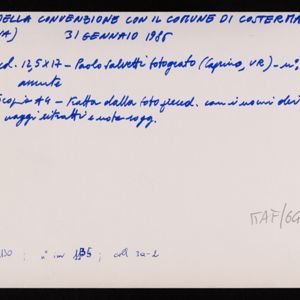 DELLA CONVENZIONE CON IL COMUNE DI COSTERMA
A) 31 GENNAIO 1985
ed. 12,5X17 - Paolo Salvetti fotografo (Caprino, VR) - n°
assente
copia A4 - Tratta dalla foto preced. con i nomi dei
naggi ritratti e note sogg.
MAF/GG
130 ; n° inv 135 ; coll 3a-2